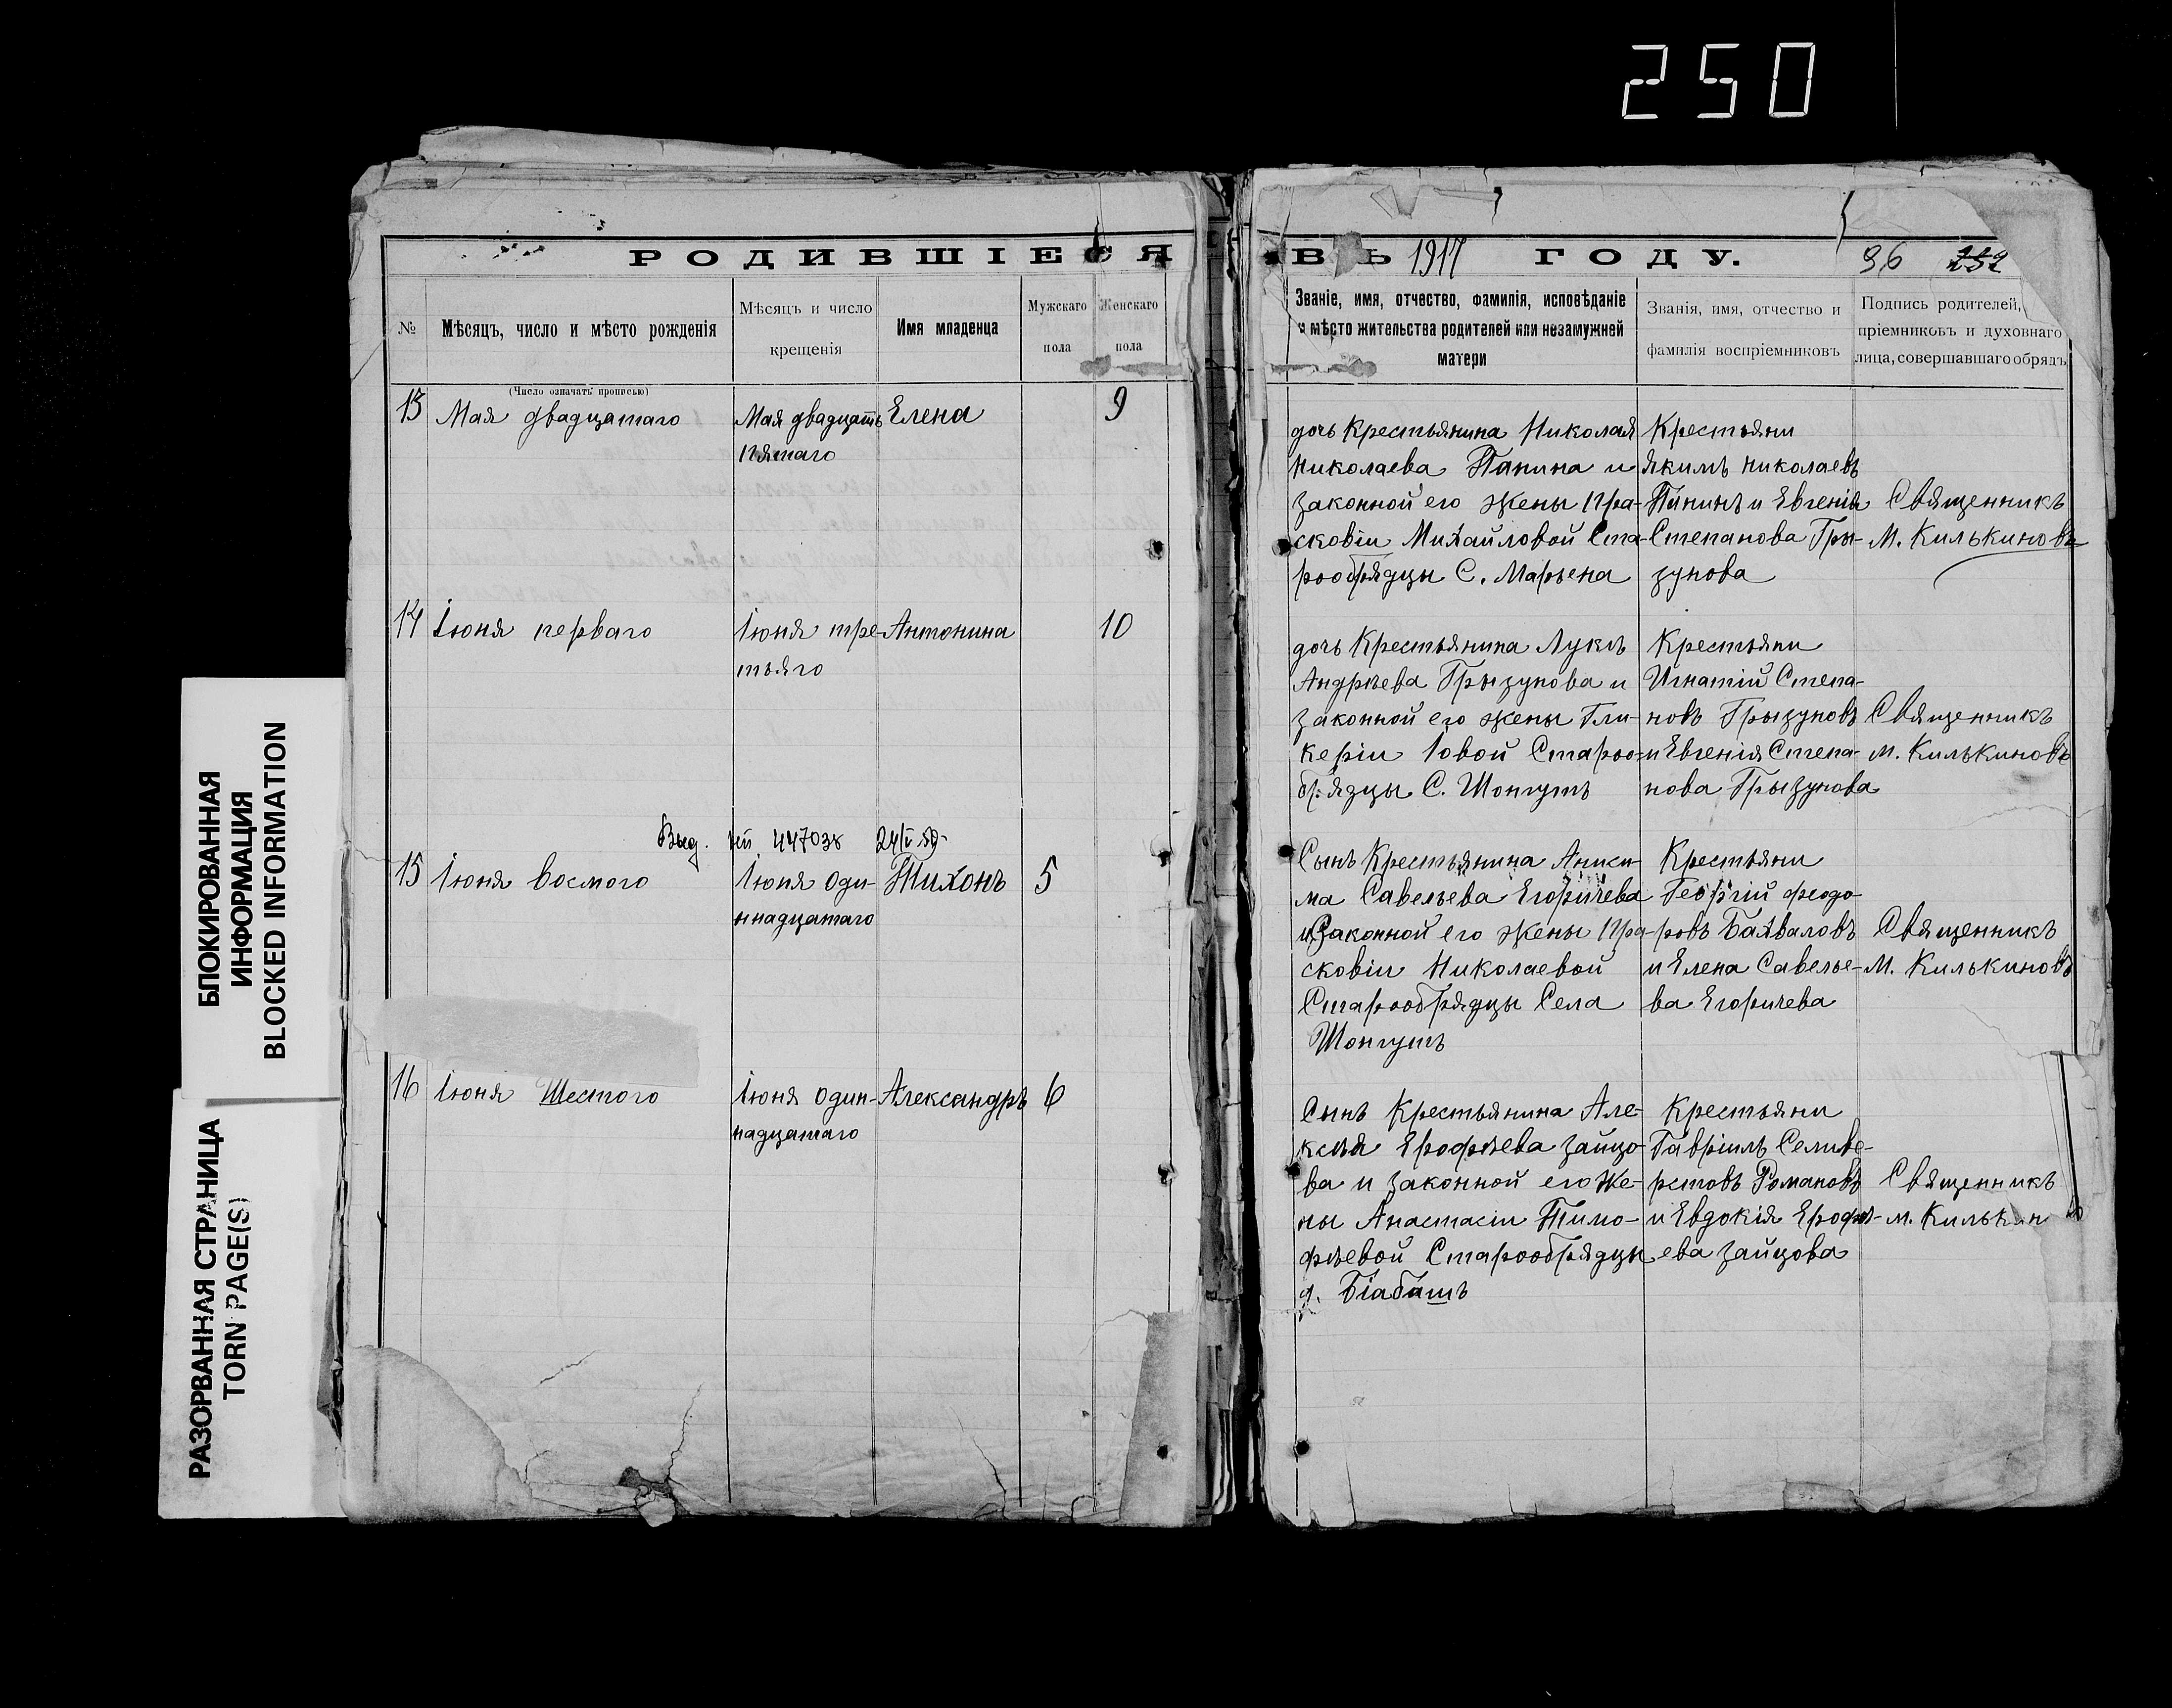 250
РОДИВШІЕСЯ ВЪ 1917 ГОДУ.
96 252
№
Мѣсяцъ, число и мѣсто рожденія
(Число означать прописью)
Мѣсяцъ и число
крещенія
Имя младенца
Мужскаго
пола
Женскаго
пола
Званіе, имя, отчество, фамилія, исповѣданіе
и мѣсто жительства родителей или незамужней
матери
Званія, имя, отчество и
фамилія воспріемниковъ
Подпись родителей,
пріемниковъ и духовнаго
лица, совершавшаго обрядъ
13 Мая двадцатаго
Мая двадцать
пятаго
Елена
9
дочь Крестьянина Николая
Николаева Панина и
законной его жены Пра-
сковіи Михайловой Ста-
рообрядцы С. Марьена
Крестьяни
Якимъ Николаевъ
Панинъ и Евгенія
Степанова Гры-
зунова
Священникъ
М. Килькиновъ
14 Іюня перваго
Іюня тре-
тьяго
Антонина
10
дочь Крестьянина Луки
Андрѣева Грызунова и
законной его жены Гли-
керіи Іовой Староо-
брядцы С. Шонгутъ
Крестьяни
Игнатій Степа-
новъ Грызуновъ
и Евгенія Степа-
нова Грызунова
Священникъ
М. Килькиновъ
Выд. 447038
15 Іюня восмого
Іюня оди-
ннадцатаго
Тихонъ
5
Сынъ Крестьянина Аниси-
ма Савельева Егоричева
и законной его жены Пра-
сковіи Николаевой
Старообрядцы Села
Шонгутъ
Крестьяни
Георгій Феодо-
ровъ Бахваловъ
и Елена Савелье-
ва Егоричева
Священникъ
М. Килькиновъ
16 Іюня Шестого
Іюня один-
надцатаго
Александръ
6
Сынъ Крестьянина Але-
ксѣя Ерофѣева Зайцо-
ва и законной его Же-
ны Анастасіи Тимо-
фѣевой Старообрядцы
д. Бїабашъ
Крестьяни
Гавріилъ Селиве-
рстовъ Романовъ
и Евдокія Ерофѣ-
ева Зайцова
Священникъ
М. Килькин
БЛОКИРОВАННАЯ
ИНФОРМАЦИЯ
BLOCKED INFORMATION
РАЗОРВАННАЯ СТРАНИЦА
TORN PAGE(S)